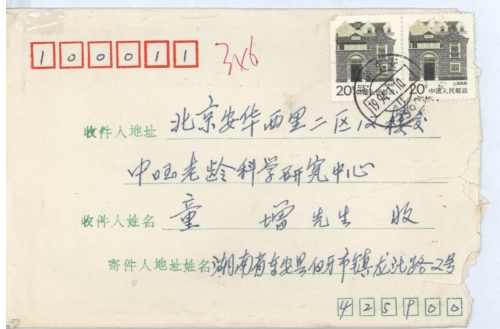 100011
3x6
20分
20分 中国人民邮政
收件人地址 北京安华西里二区
中 老龄科学研究中心
收件人姓名 童增先生 收
寄件人地址姓名 湖南省东安县白牙市镇龙北路2号
425900